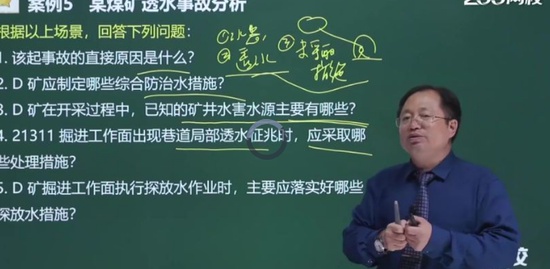 案例5 某煤矿透水事故分析
根据以上场景，回答下列问题：
1. 该起事故的直接原因是什么？
2. D 矿应制定哪些综合防治水措施？
3. D 矿在开采过程中，已知的矿井水害水源主要有哪些？
4. 21311 掘进工作面出现巷道局部透水征兆时，应采取哪
些处理措施？
5. D 矿掘进工作面执行探放水作业时，主要应落实好哪些
探放水措施？